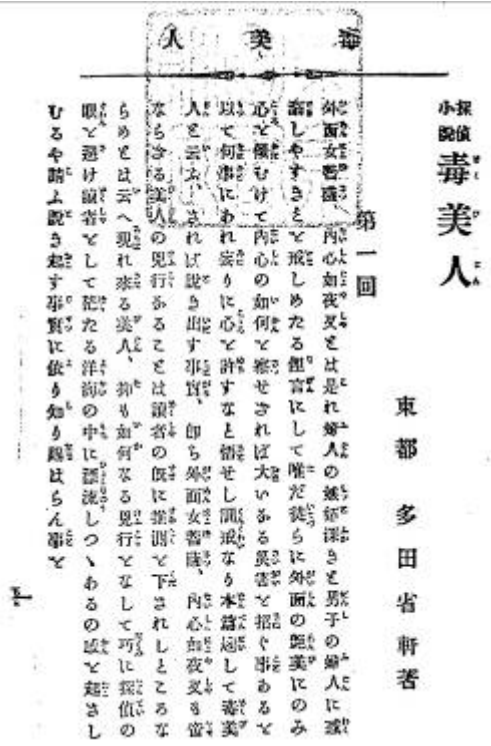 毒美人
探偵小説 毒美人
東都 多田省軒著
第一回
外面女菩薩、内心如夜叉とは是れ婦人の嫉妬深きと男子の婦人に惑
溺しやすきとを戒しめたる俚言にして唯だ徒らに外面の艶美にのみ
心を傾むけて内心の如何を察せざれば大いなる災害を招ぐ事あるを
以て何事にあれ妄りに心を許すなと悟せし訓戒なり本篇題して毒美
人と云ふ、されば説き出す事實、即ち外面女菩薩、内心如夜叉も啻
ならざる美人の兇行あることは讀者の既に推測を下されしところな
らめとは云へ現れ来る美人、抑も如何なる兇行をなして巧に探偵の
眼を避け讀者をして茫たる洋海の中に漂流しつゝあるの感を起さし
むるや請ふ説き起す事實に依り知り賜はらん事を